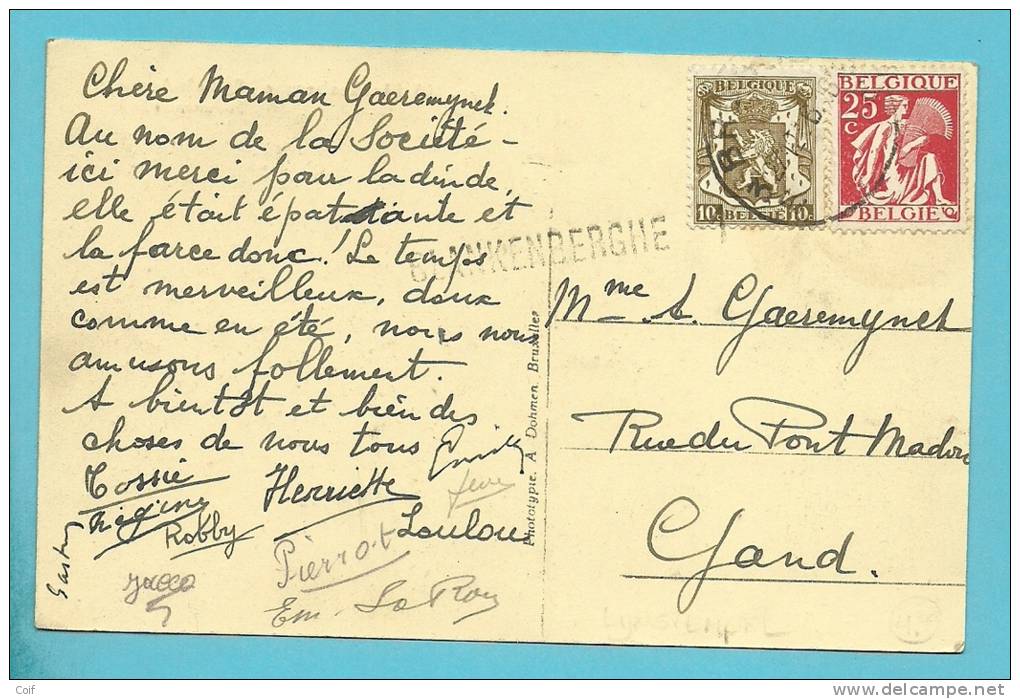 Chère Maman Gaeremynck.
Au nom de la Société –
ici merci pour la dinde,
elle était épatante et
la farce donc! Le temps
est merveilleux, doux
comme en été, nous nous
amusons follement.
A bientôt et bien des
choses de nous tous Emily
Tossie
Henriette
Régine
Robby
Loulou
Gaston
Pierrot
Em. Le Roy
BLANKENBERGHE
Phototypie. A. Dohmen. Bruxelles
BELGIQUE
10c BELGIË 10c
BELGIQUE
25
C
BELGIË
Mme A. Gaeremynck
Rue du Pont Madou
Gand.
Coif
www.delcampe.net